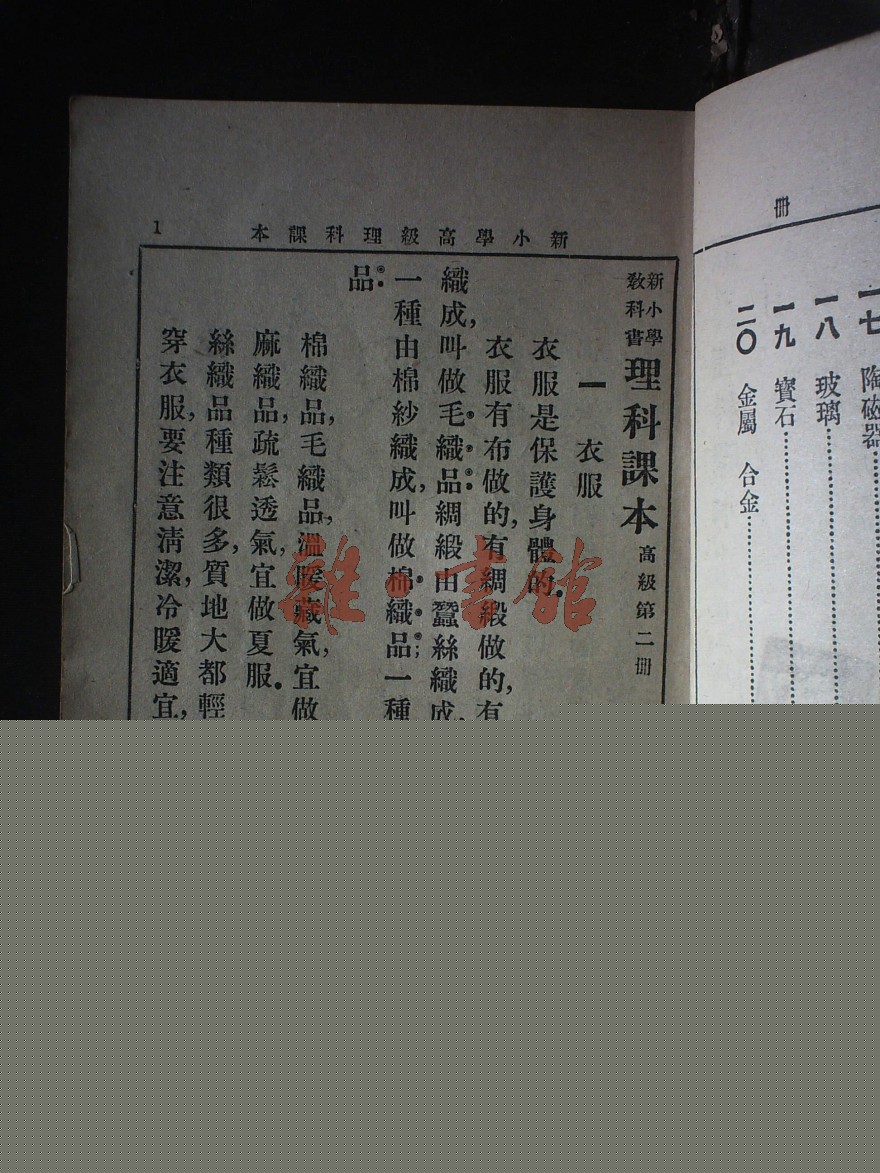 冊
一七 陶磁器
一八 玻璃
一九 寶石
二〇 金屬 合金
本課科理級高學小新 1
新小學教科書 理科課本 高級第二冊
一 衣服
衣服是保護身體的.
衣服有布做的,有綢緞做的,有
織成,叫做毛織品綢緞由蠶絲織成,
一種由棉紗織成,叫做棉織品;一種
品.
棉織品,毛織品,溫暖藏氣,宜做
麻織品,疏鬆透氣,宜做夏服.
絲織品種類很多,質地大都輕
穿衣服,要注意清潔,冷暖適宜,
雜·書館